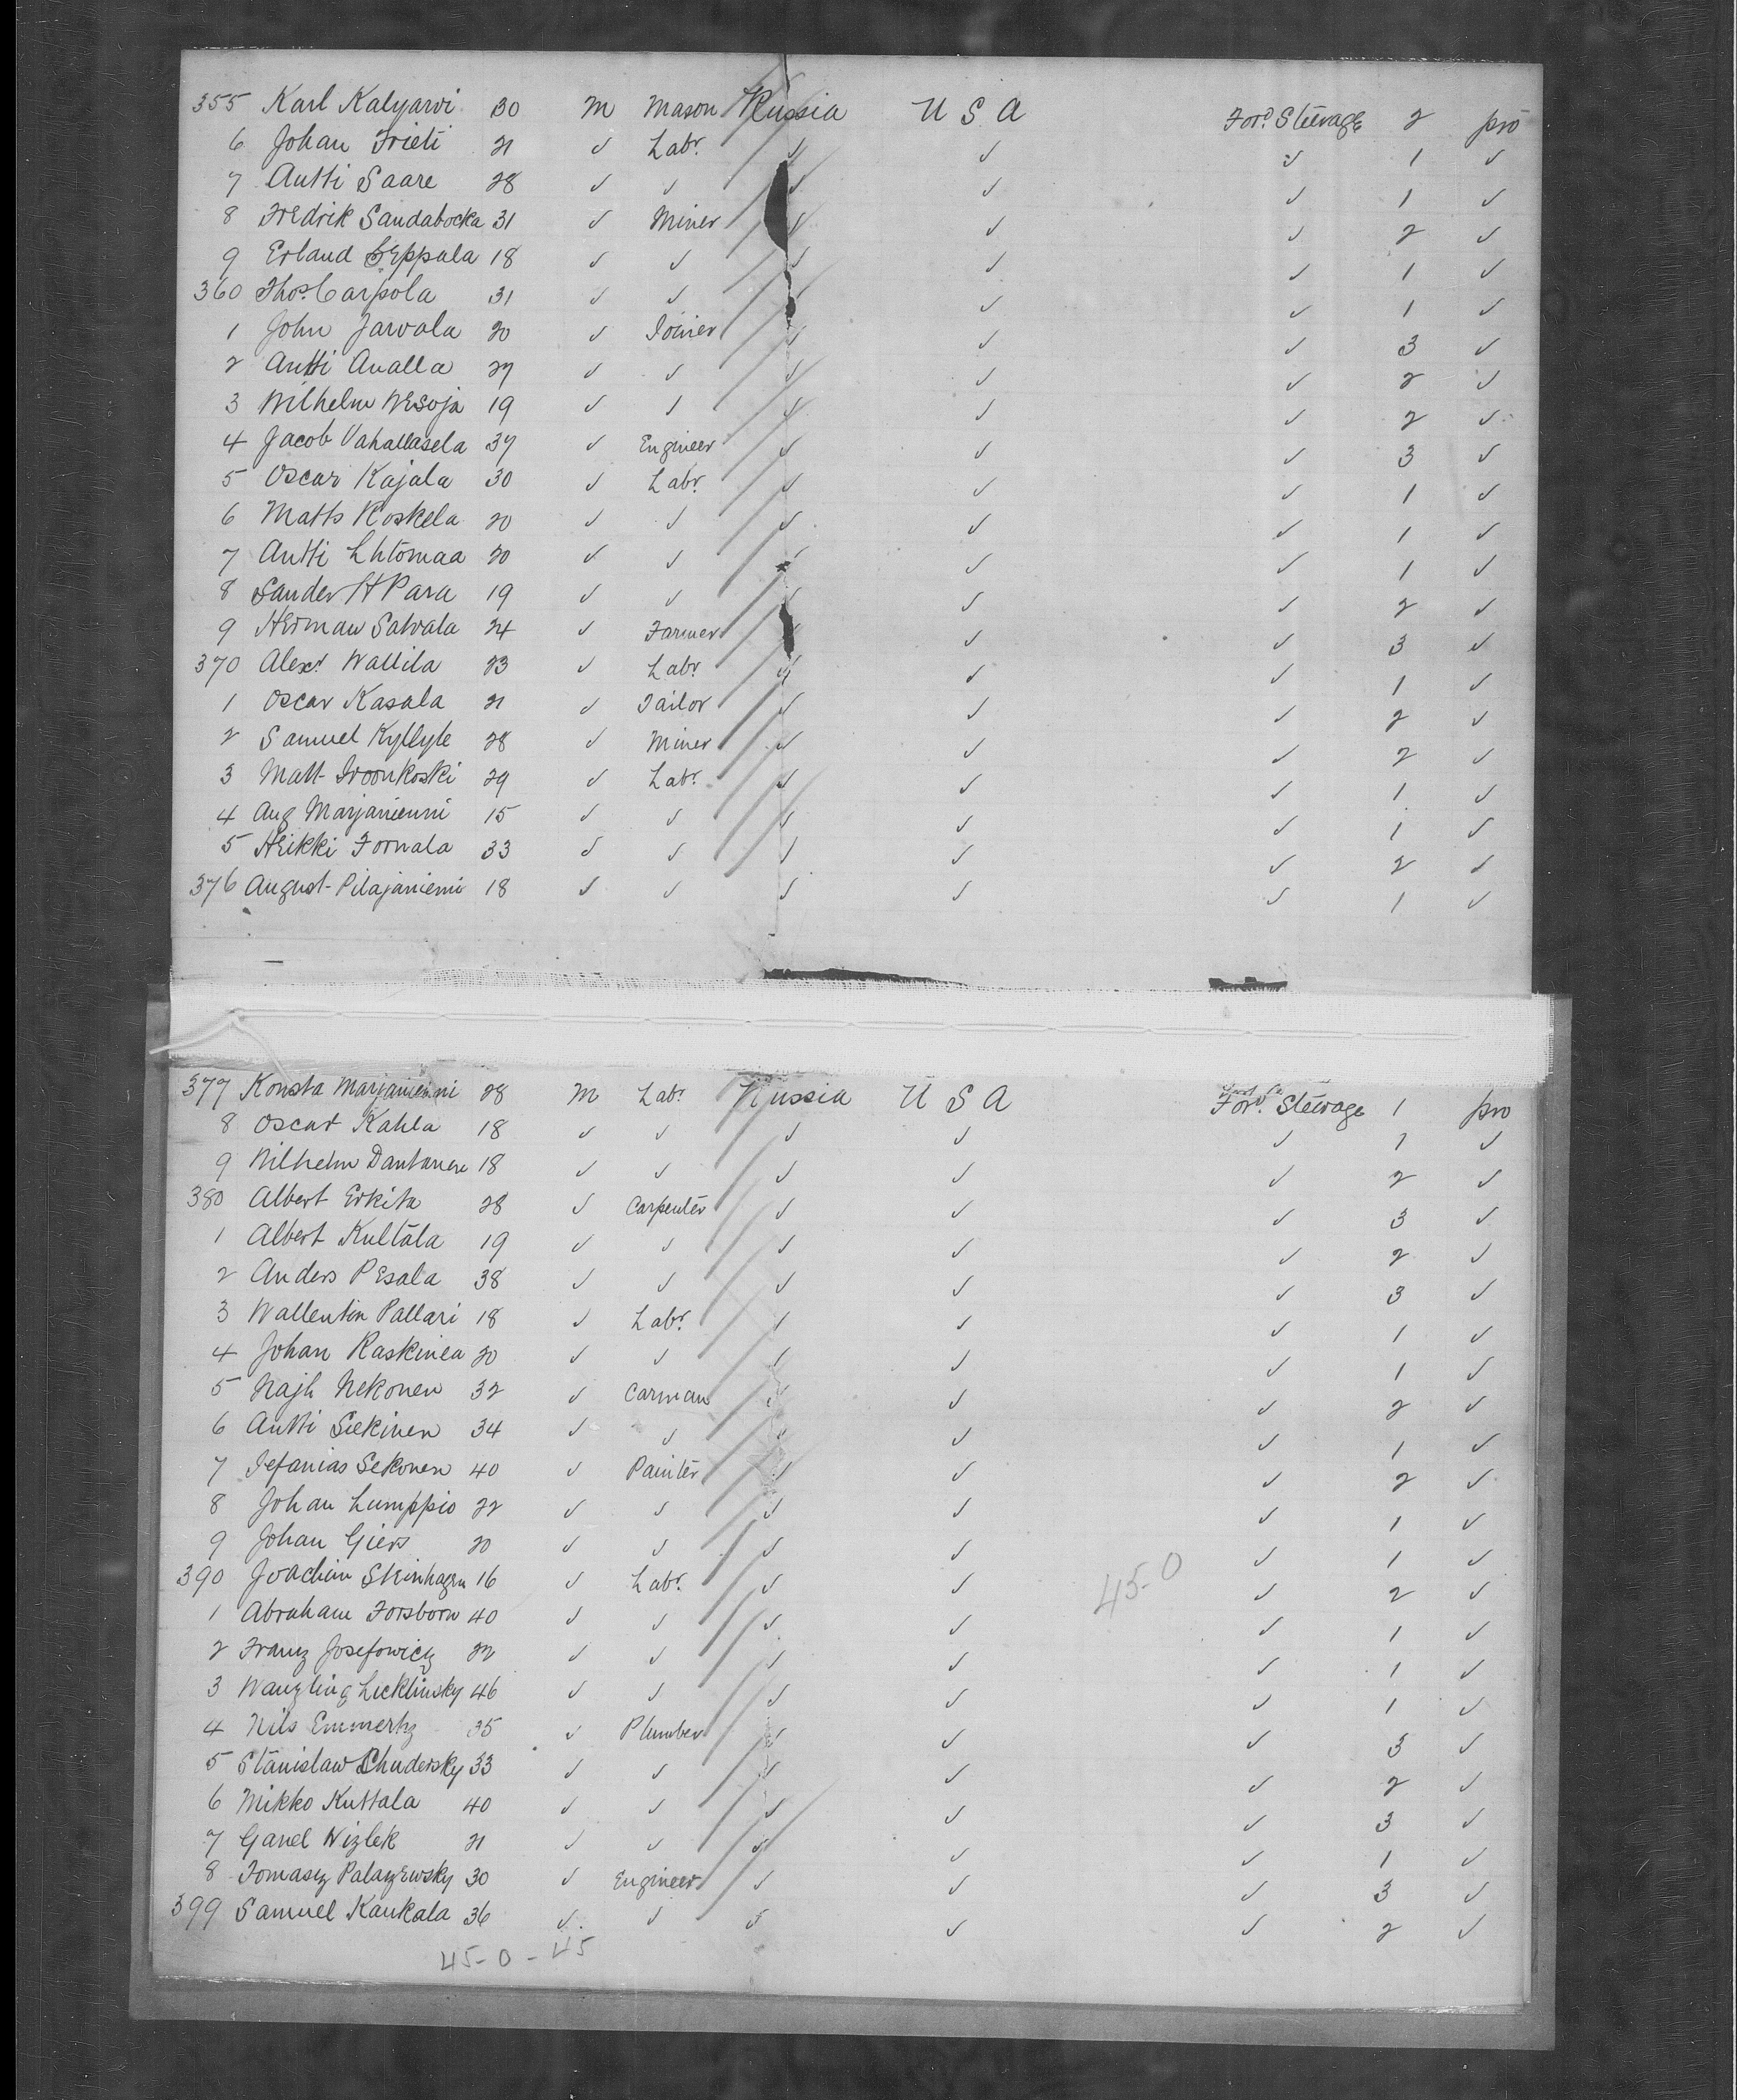 355 Karl Kalyarvi 30 M Mason Russia U S A For.d Steerage 2 pro
6 Johan Frieti 21 ✓ Labr. ✓ ✓ ✓ 1 ✓
7 Antti Saare 28 ✓ ✓ ✓ ✓ ✓ 1 ✓
8 Fredrik Sandabocka 31 ✓ Miner ✓ ✓ ✓ 2 ✓
9 Erland Seppala 18 ✓ ✓ ✓ ✓ ✓ 1 ✓
360 Thos. Carpola 31 ✓ ✓ ✓ ✓ 1 ✓
1 John Jarvala 20 ✓ Joiner ✓ ✓ ✓ 3 ✓
2 Antti Analla 27 ✓ ✓ ✓ ✓ ✓ 2 ✓
3 Wilhelm Wesoja 19 ✓ ✓ ✓ ✓ ✓ 2 ✓
4 Jacob Vahallasela 37 ✓ Engineer ✓ ✓ ✓ 3 ✓
5 Oscar Kajala 30 ✓ Labr. ✓ ✓ ✓ 1 ✓
6 Matts Koskela 20 ✓ ✓ ✓ ✓ ✓ 1 ✓
7 Antti Lhtomaa 20 ✓ ✓ ✓ ✓ ✓ 1 ✓
8 Sander H Para 19 ✓ ✓ ✓ ✓ ✓ 2 ✓
9 Herman Salvala 24 ✓ Farmer ✓ ✓ ✓ 3 ✓
370 Alexr. Wallila 23 ✓ Labr. ✓ ✓ ✓ 1 ✓
1 Oscar Kasala 21 ✓ Tailor ✓ ✓ ✓ 2 ✓
2 Samuel Kyllyle 28 ✓ Miner ✓ ✓ ✓ 2 ✓
3 Matt Ivoonkoski 29 ✓ Labr. ✓ ✓ ✓ 1 ✓
4 Aug Marjaniemi 15 ✓ ✓ ✓ ✓ ✓ 1 ✓
5 Heikki Fornala 33 ✓ ✓ ✓ ✓ ✓ 2 ✓
376 August Pilajaniemi 18 ✓ ✓ ✓ ✓ ✓ 1 ✓
377 Konsta Marjaniemi 28 M Labr. Russia U S A For.d Steerage 1 pro
8 Oscar Kahla 18 ✓ ✓ ✓ ✓ ✓ 1 ✓
9 Wilhelm Dantanen 18 ✓ ✓ ✓ ✓ ✓ 2 ✓
380 Albert Erkita 28 ✓ Carpenter ✓ ✓ ✓ 3 ✓
1 Albert Kultala 19 ✓ ✓ ✓ ✓ ✓ 2 ✓
2 Anders Pesala 38 ✓ ✓ ✓ ✓ ✓ 3 ✓
3 Wallentin Pallari 18 ✓ Labr. ✓ ✓ ✓ 1 ✓
4 Johan Raskinea 20 ✓ ✓ ✓ ✓ ✓ 1 ✓
5 Najh Nekonen 32 ✓ Carman ✓ ✓ ✓ 2 ✓
6 Antti Siekinen 34 ✓ ✓ ✓ ✓ ✓ 1 ✓
7 Iefanias Sekonen 40 ✓ Painter ✓ ✓ ✓ 2 ✓
8 Johan Lumppio 22 ✓ ✓ ✓ ✓ ✓ 1 ✓
9 Johan Giers 20 ✓ ✓ ✓ ✓ ✓ 1 ✓
390 Joachim Steinhagen 16 ✓ Labr. ✓ ✓ 45-0 ✓ 2 ✓
1 Abraham Forsborn 40 ✓ ✓ ✓ ✓ ✓ 1 ✓
2 Franz Josefowicz 22 ✓ ✓ ✓ ✓ ✓ 1 ✓
3 Wanzling Lecklinsky 46 ✓ ✓ ✓ ✓ ✓ 1 ✓
4 Nils Emmertz 35 ✓ Plumber ✓ ✓ ✓ 3 ✓
5 Stanislaw Chudersky 33 ✓ ✓ ✓ ✓ ✓ 2 ✓
6 Mikko Kuttala 40 ✓ ✓ ✓ ✓ ✓ 3 ✓
7 Ganel Wizlek 21 ✓ ✓ ✓ ✓ ✓ 1 ✓
8 Tomasz Palazewsky 30 ✓ Engineer ✓ ✓ ✓ 3 ✓
399 Samuel Kaukala 36 ✓ ✓ ✓ ✓ ✓ 2 ✓
45-0-45